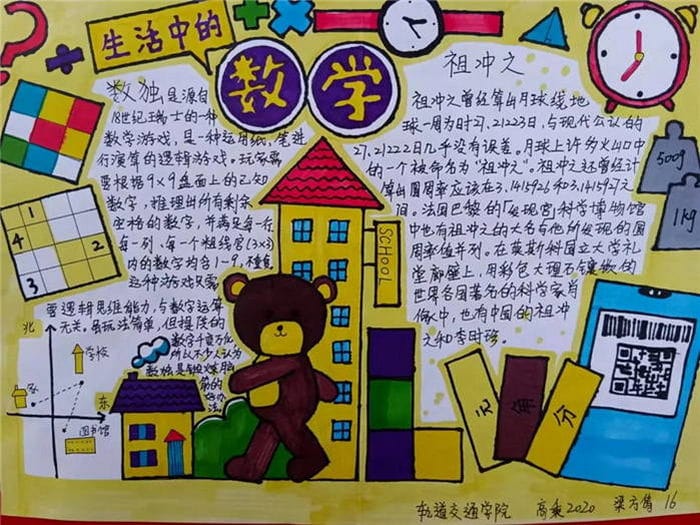 生活中的
数学
数独是源自
18世纪瑞士的一种
数学游戏，是一种运用纸、笔进
行演算的逻辑游戏。玩家需
要根据9×9盘面上的已知
数字，推理出所有剩余
空格的数字，并满足每一行
每一列、每一个粗线宫(3×3)
内的数字均含1-9，不重复
这种游戏只需
要逻辑思维能力，与数字运算
无关。虽玩法简单，但提供的
数字千变万化
所以不少人认为
数独是锻炼脑
筋的
好办
法
祖冲之
祖冲之曾经算出月球绕地
球一周为时27.21223日，与现代公认的
27.21222日几乎没有误差。月球上许多火山口中
的一个被命名为“祖冲之”。祖冲之还曾经计
算出圆周率应该在3.1415926和3.1415927之
间。法国巴黎的「发现宫」科学博物馆
中也有祖冲之的大名与他所发现的圆
周率值并列。在莫斯科国立大学礼
堂廊壁上，用彩色大理石镶嵌的
世界各国著名的科学家肖
像中，也有中国的祖冲
之和李时珍。
1
4
2
3
北
学校
家
东
图书馆
SCHOOL
500g
1kg
元
角
分
轨道交通学院 高乘2020 梁方倩 16